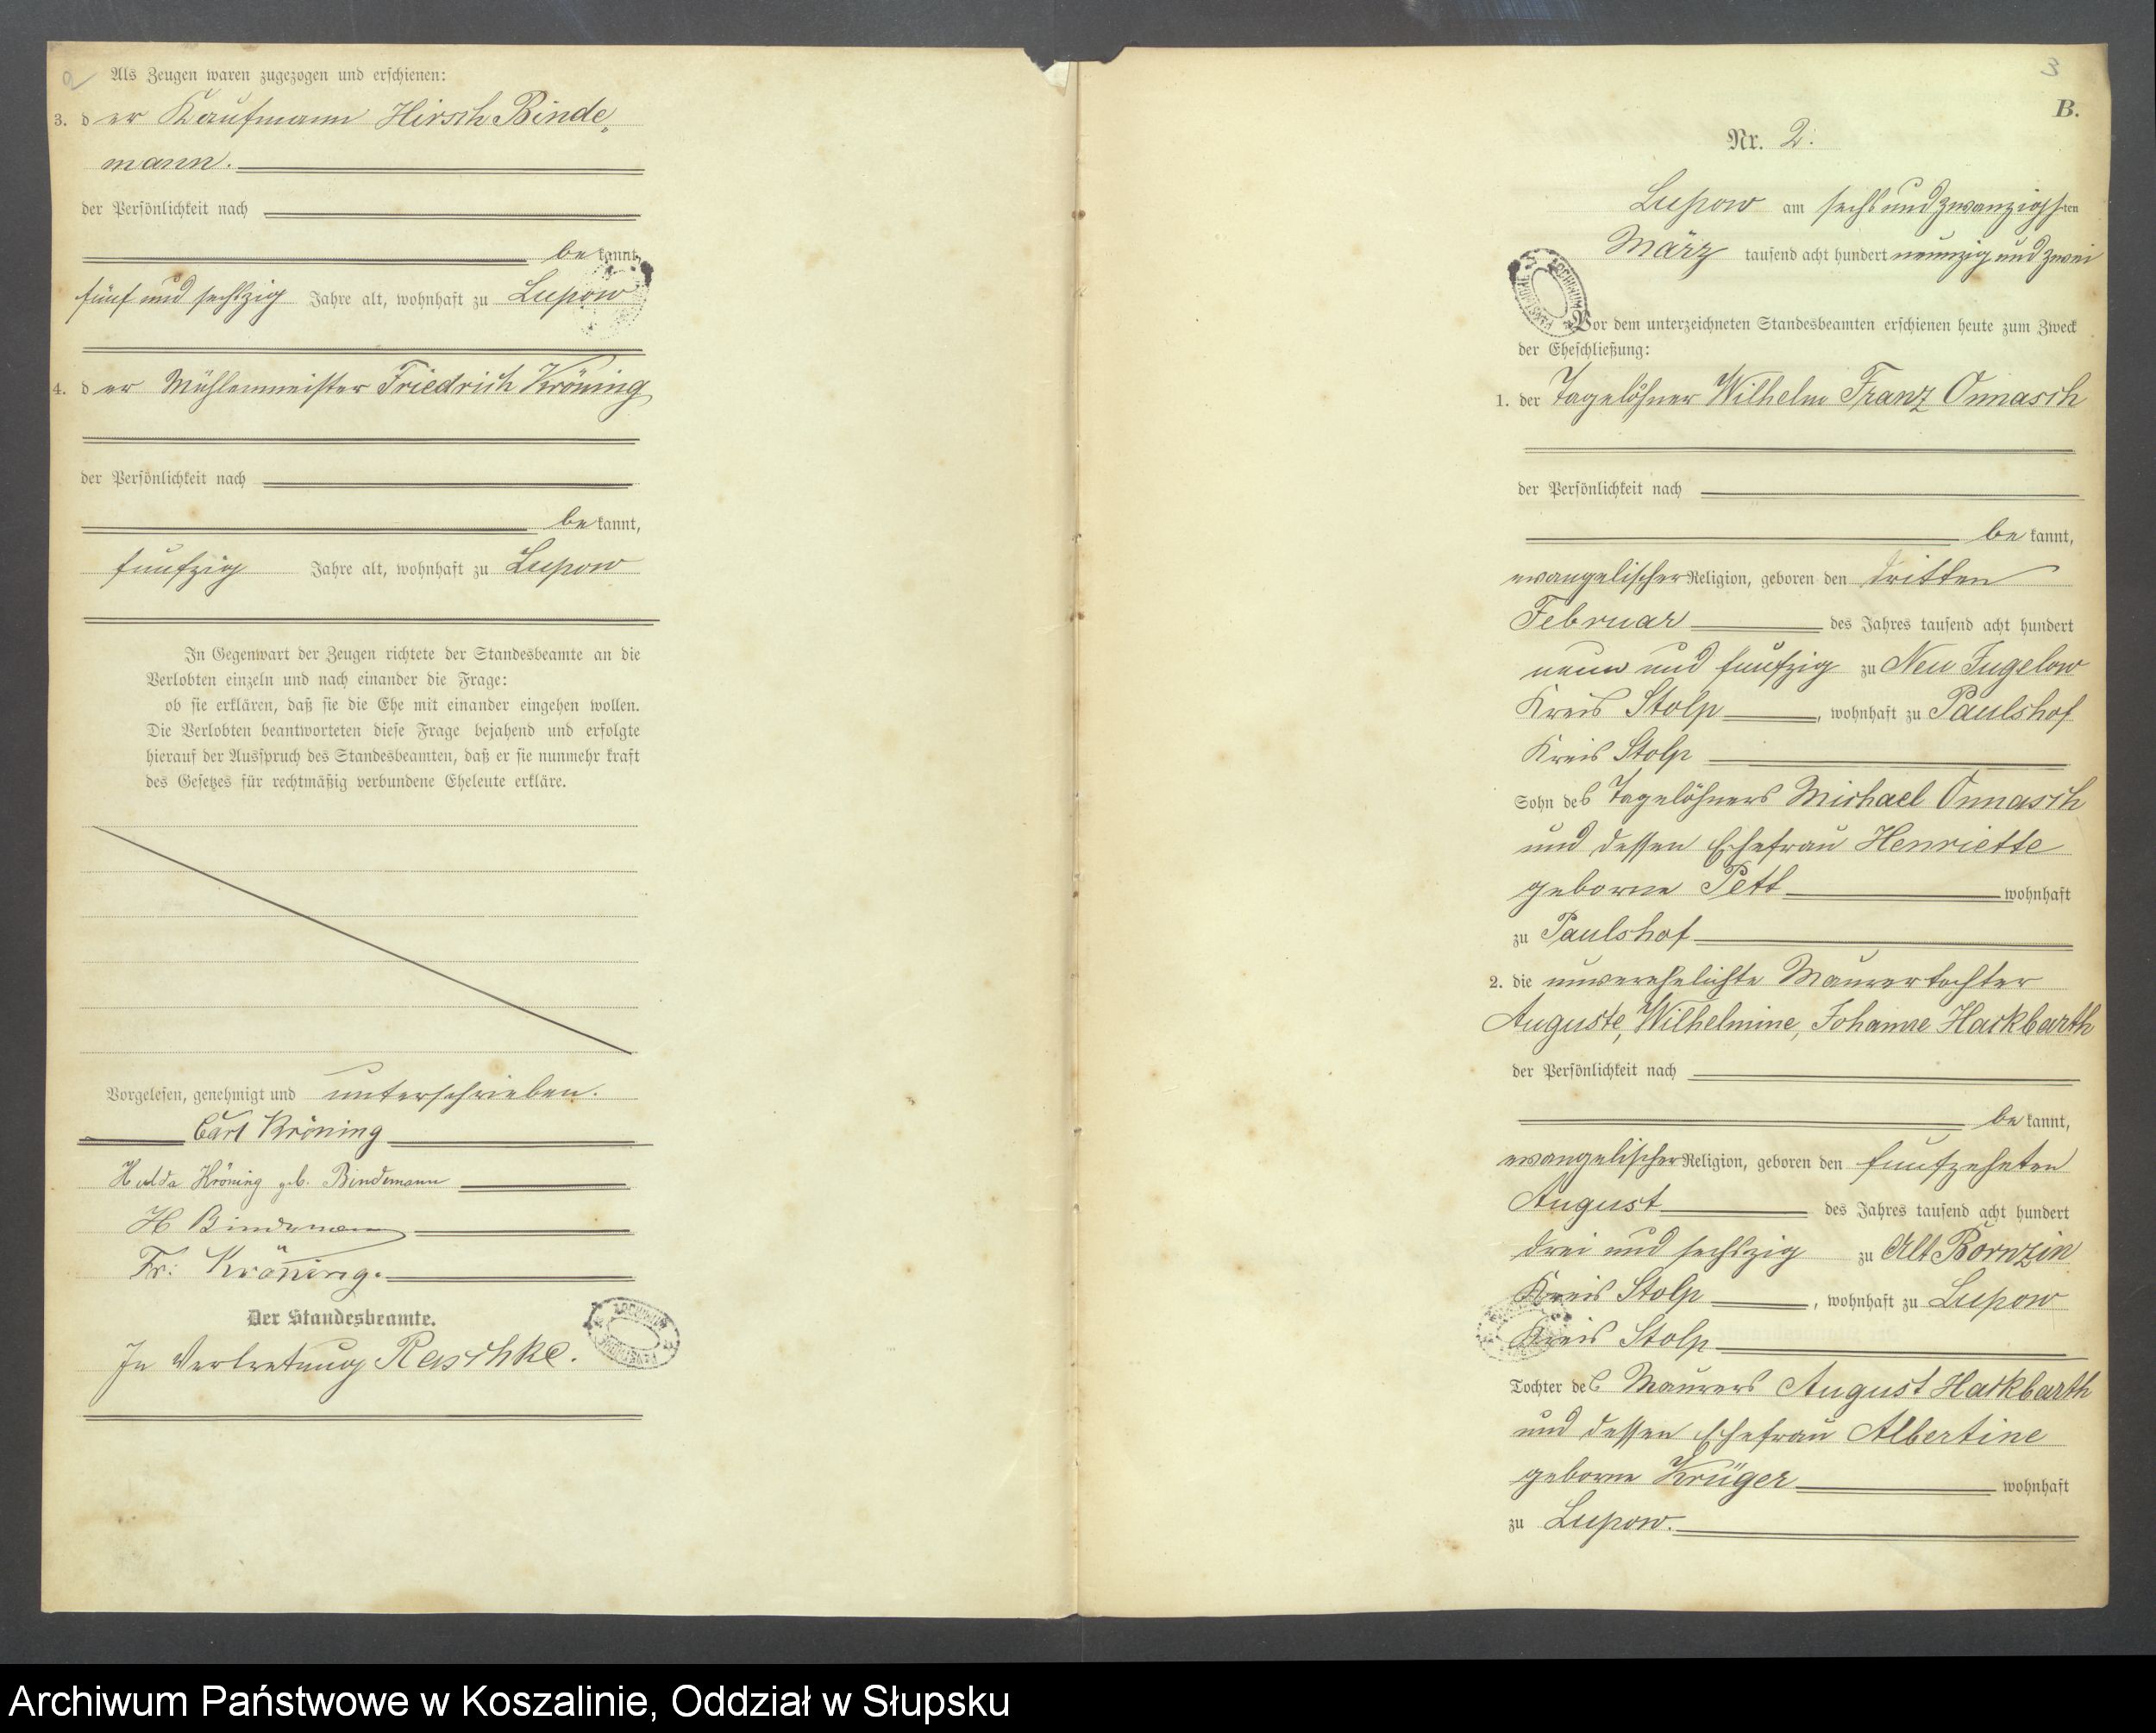 2
Als Zeugen waren zugezogen und erschienen:
3. der Kaufmann Hirsch Binde„
mann.
der Persönlichkeit nach
bekannt,
fünf und sechszig Jahre alt, wohnhaft zu Lupow
4. der Mühlenmeister Friedrich Kröning
der Persönlichkeit nach
bekannt,
funfzig Jahre alt, wohnhaft zu Lupow
In Gegenwart der Zeugen richtete der Standesbeamte an die
Verlobten einzeln und nach einander die Frage:
ob sie erklären, daß sie die Ehe mit einander eingehen wollen.
Die Verlobten beantworteten diese Frage bejahend und erfolgte
hierauf der Ausspruch des Standesbeamten, daß er sie nunmehr kraft
des Gesetzes für rechtmäßig verbundene Eheleute erkläre.
Vorgelesen, genehmigt und unterschrieben.
Carl Kröning
Hulda Kröning geb. Bindemann
H Bindemann
Fr: Kröning.
Der Standesbeamte.
In Vertretung Raschke.
3
B.
Nr. 2.
Lupow am sechsundzwanzigsten
März tausend acht hundert neunzig und zwei
Vor dem unterzeichneten Standesbeamten erschienen heute zum Zweck
der Eheschließung:
1. der Tagelöhner Wilhelm Franz Onnasch
der Persönlichkeit nach
bekannt,
evangelischer Religion, geboren den dritten
Februar des Jahres tausend acht hundert
neun und funfzig zu Neu Jugelow
Kreis Stolp, wohnhaft zu Paulshof
Kreis Stolp
Sohn des Tagelöhners Michael Onnasch
und dessen Ehefrau Henriette
geborne Pett wohnhaft
zu Paulshof
2. die unverehelichte Maurertochter
Auguste, Wilhelmine, Johanne Hackbarth
der Persönlichkeit nach
bekannt,
evangelischer Religion, geboren den funfzehnten
August des Jahres tausend acht hundert
drei und sechszig zu Alt Bornzin
Kreis Stolp, wohnhaft zu Lupow
Kreis Stolp
Tochter des Maurers August Hackbarth
und dessen Ehefrau Albertine
geborne Krüger wohnhaft
zu Lupow.
Archiwum Państwowe w Koszalinie, Oddział w Słupsku